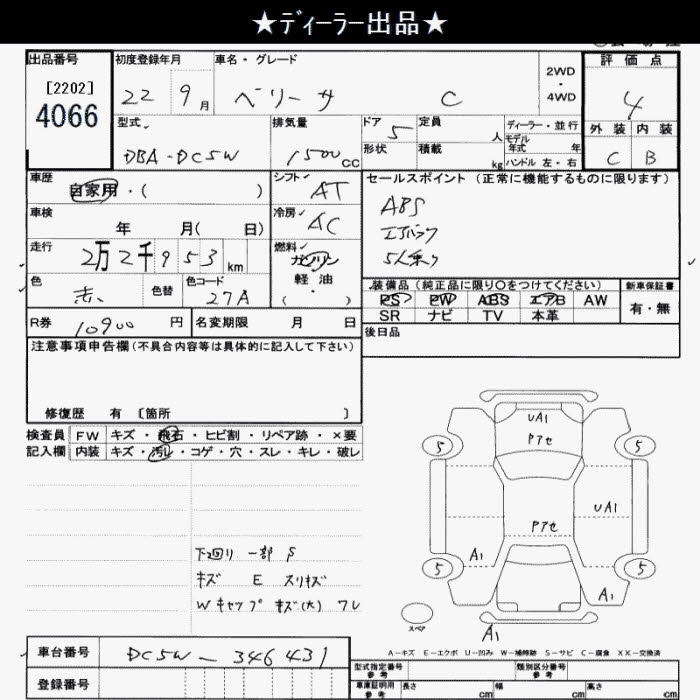 ★ディーラー出品★
出品番号 初度登録年月 車名・グレード 評価点
[2202] 22 9月 ベリーサ C 2WD・4WD 4
4066
型式 排気量 ドア 5 定員 人 ディーラー・並行 外装 内装
DBA-DC5W 1500cc 形状 積載 kg モデル年式 年 C B
ハンドル 左・右
車歴 シフト AT セールスポイント (正常に機能するものに限ります)
自家用・( )
車検 冷房 AC ABS
年 月( 日) エアバック
走行 2万2千953km 燃料 ガソリン 5人乗り
軽油
( )
色 赤 色替 色コード 27A 装備品(純正品に限り○をつけてください) 新車保証書
PS PW ABS エアB AW 有・無
SR ナビ TV 本革
R券 10900円 名変期限 月 日 後日品
注意事項申告欄(不具合内容等は具体的に記入して下さい)
修復歴 有 〔箇所 〕
検査員 FW キズ・飛石・ヒビ割・リペア跡・×要
記入欄 内装 キズ・汚レ・コゲ・穴・スレ・キレ・破レ
UA1
Pアセ
5 5
UA1
Pアセ
A1
5 5
A1
スペア
A1
下回り 一部 S
キズ E スリキズ
Wキャップキズ(大) ワレ
A-キズ E-エクボ U-凹み W-補修跡 S-サビ C-腐食 XX-交換済
車台番号 DC5W-346431
登録番号
型式指定番号 参考 類別区分番号 参考
車庫証明用 参考 長さ cm 幅 cm 高さ cm